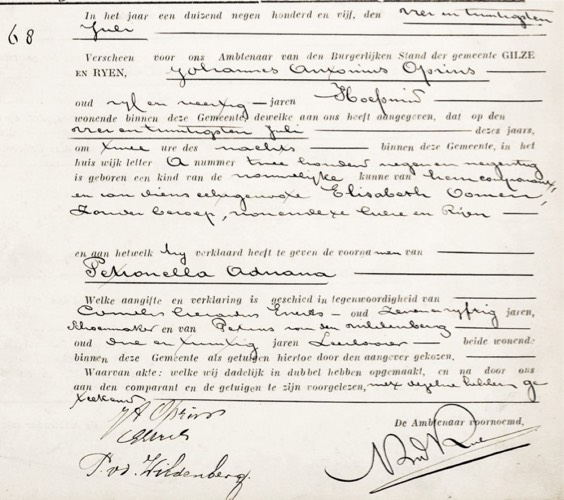 68
In het jaar een duizend negen honderd en vijf, den vier en twintigsten
Juli
Verscheen voor ons Ambtenaar van den Burgerlijken Stand der gemeente GILZE
EN RYEN, Johannes Antonius Oprins
oud vijf en veertig jaren Hoefsmid
wonende binnen deze Gemeente, dewelke aan ons heeft aangegeven, dat op den
vier en twintigsten Juli dezes jaars,
om twee ure des nachts binnen deze Gemeente, in het
huis wijk letter A nummer twee honderd negen en negentig
is geboren een kind van de mannelijke kunne van hem comparant,
en van diens echtgenoote Elisabeth Oomen,
zonder beroep, wonende te Gilze en Rijen
en aan hetwelk hij verklaard heeft te geven de voornamen van
Petronella Adriana
Welke aangifte en verklaring is geschied in tegenwoordigheid van
Cornelis Gerardus oud zeven en vijftig jaren,
Schoenmaker en van Petrus van den Wildenberg
oud drie en twintig jaren Leerlooier beide wonende
binnen deze Gemeente als getuigen hiertoe door den aangever gekozen.
Waarvan akte: welke wij dadelijk in dubbel hebben opgemaakt, en na door ons
aan den comparant en de getuigen te zijn voorgelezen, met dezelve hebben ge
teekend
De Ambtenaar voornoemd,
JA Oprins
P. vd. Wildenberg.